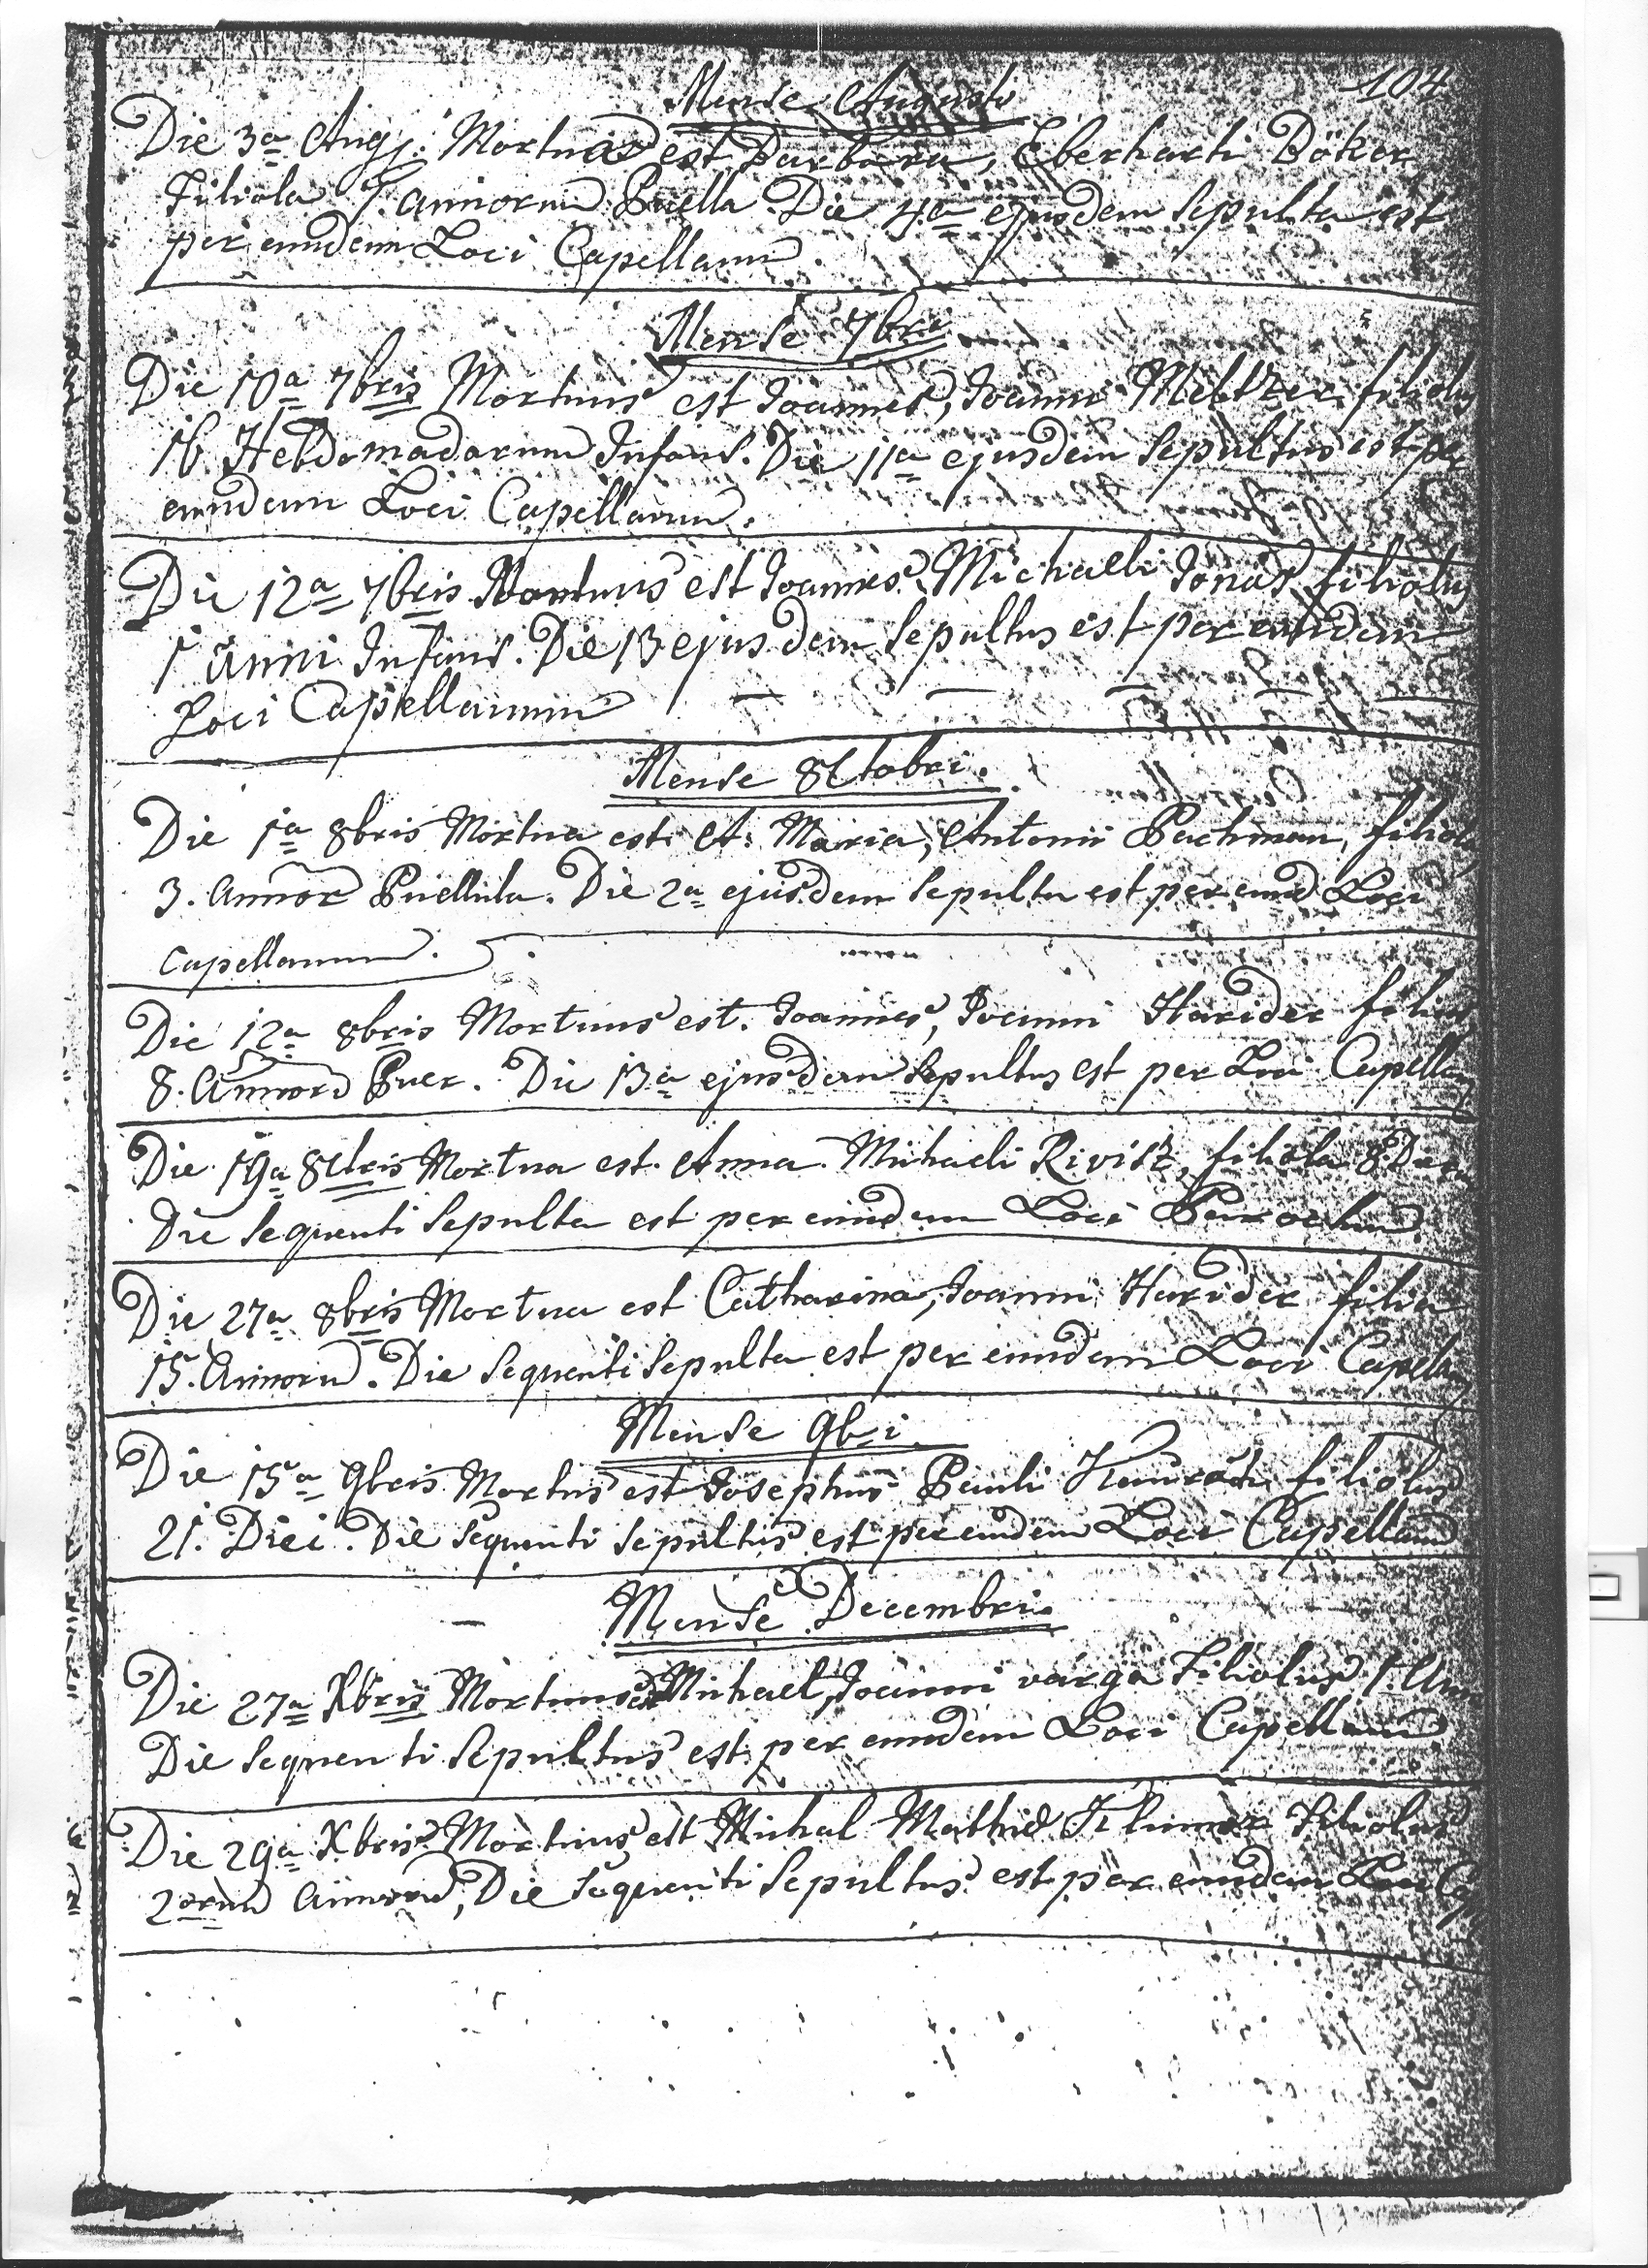 104
Mense Augusto
Die 3a Augj: Mortua est Barbara, Eberharti Böker
Filiola 7. annorum Puella. Die 4a ejusdem Sepulta est
per eundem Loci Capellanum.
Mense 7bri
Die 10a 7bris Mortuus est Joannes, Joanni Meltzer filiolus
16 Hebdomadarum Infans. Die 11a ejusdem Sepultus est per
eundem Loci Capellanum.
Die 12a 7bris Mortuus est Joannes, Michaeli Jonas filiolus
1 anni Infans. Die 13 ejusdem Sepultus est per eundem
Loci Capellanum
Mense 8ctobri.
Die 1a 8bris Mortua est A: Maria, Antonii Bachman, filiola
3. annor Puellula. Die 2a ejusdem Sepulta est per eund Loci
Capellanum.
Die 12a 8bris Mortuus est. Joannes, Joanni Harider filius
8. Annorū Puer. Die 13a ejusdem Sepultus est per Loci Capellan
Die 19a 8bris Mortua est. Anna. Michaeli Rivisz, filiola 8. Dieru
Die Sequenti Sepulta est per eundem Loci Parochum.
Die 27a 8bris Mortua est Catharina, Joanni Harider filia
15. Annorū. Die Sequenti Sepulta est per eundem Loci Capellan
Mense 9bri
Die 15a 9bris Mortus est Josephus Pauli filiolus
21. Diei. Die Sequenti Sepultus est per eundem Loci Capellanū
Mense Decembri.
Die 27a Xbris Mortuus est Michael, Joanni varga Filiolus 1. Ann
Die Sequenti Sepultus est per eundem Loci Capellanū.
Die 29a Xbris Mortuus est Michal Mathiæ Filiolus
2orum annorū, Die Sequenti Sepultus est per eundem Loci Cap